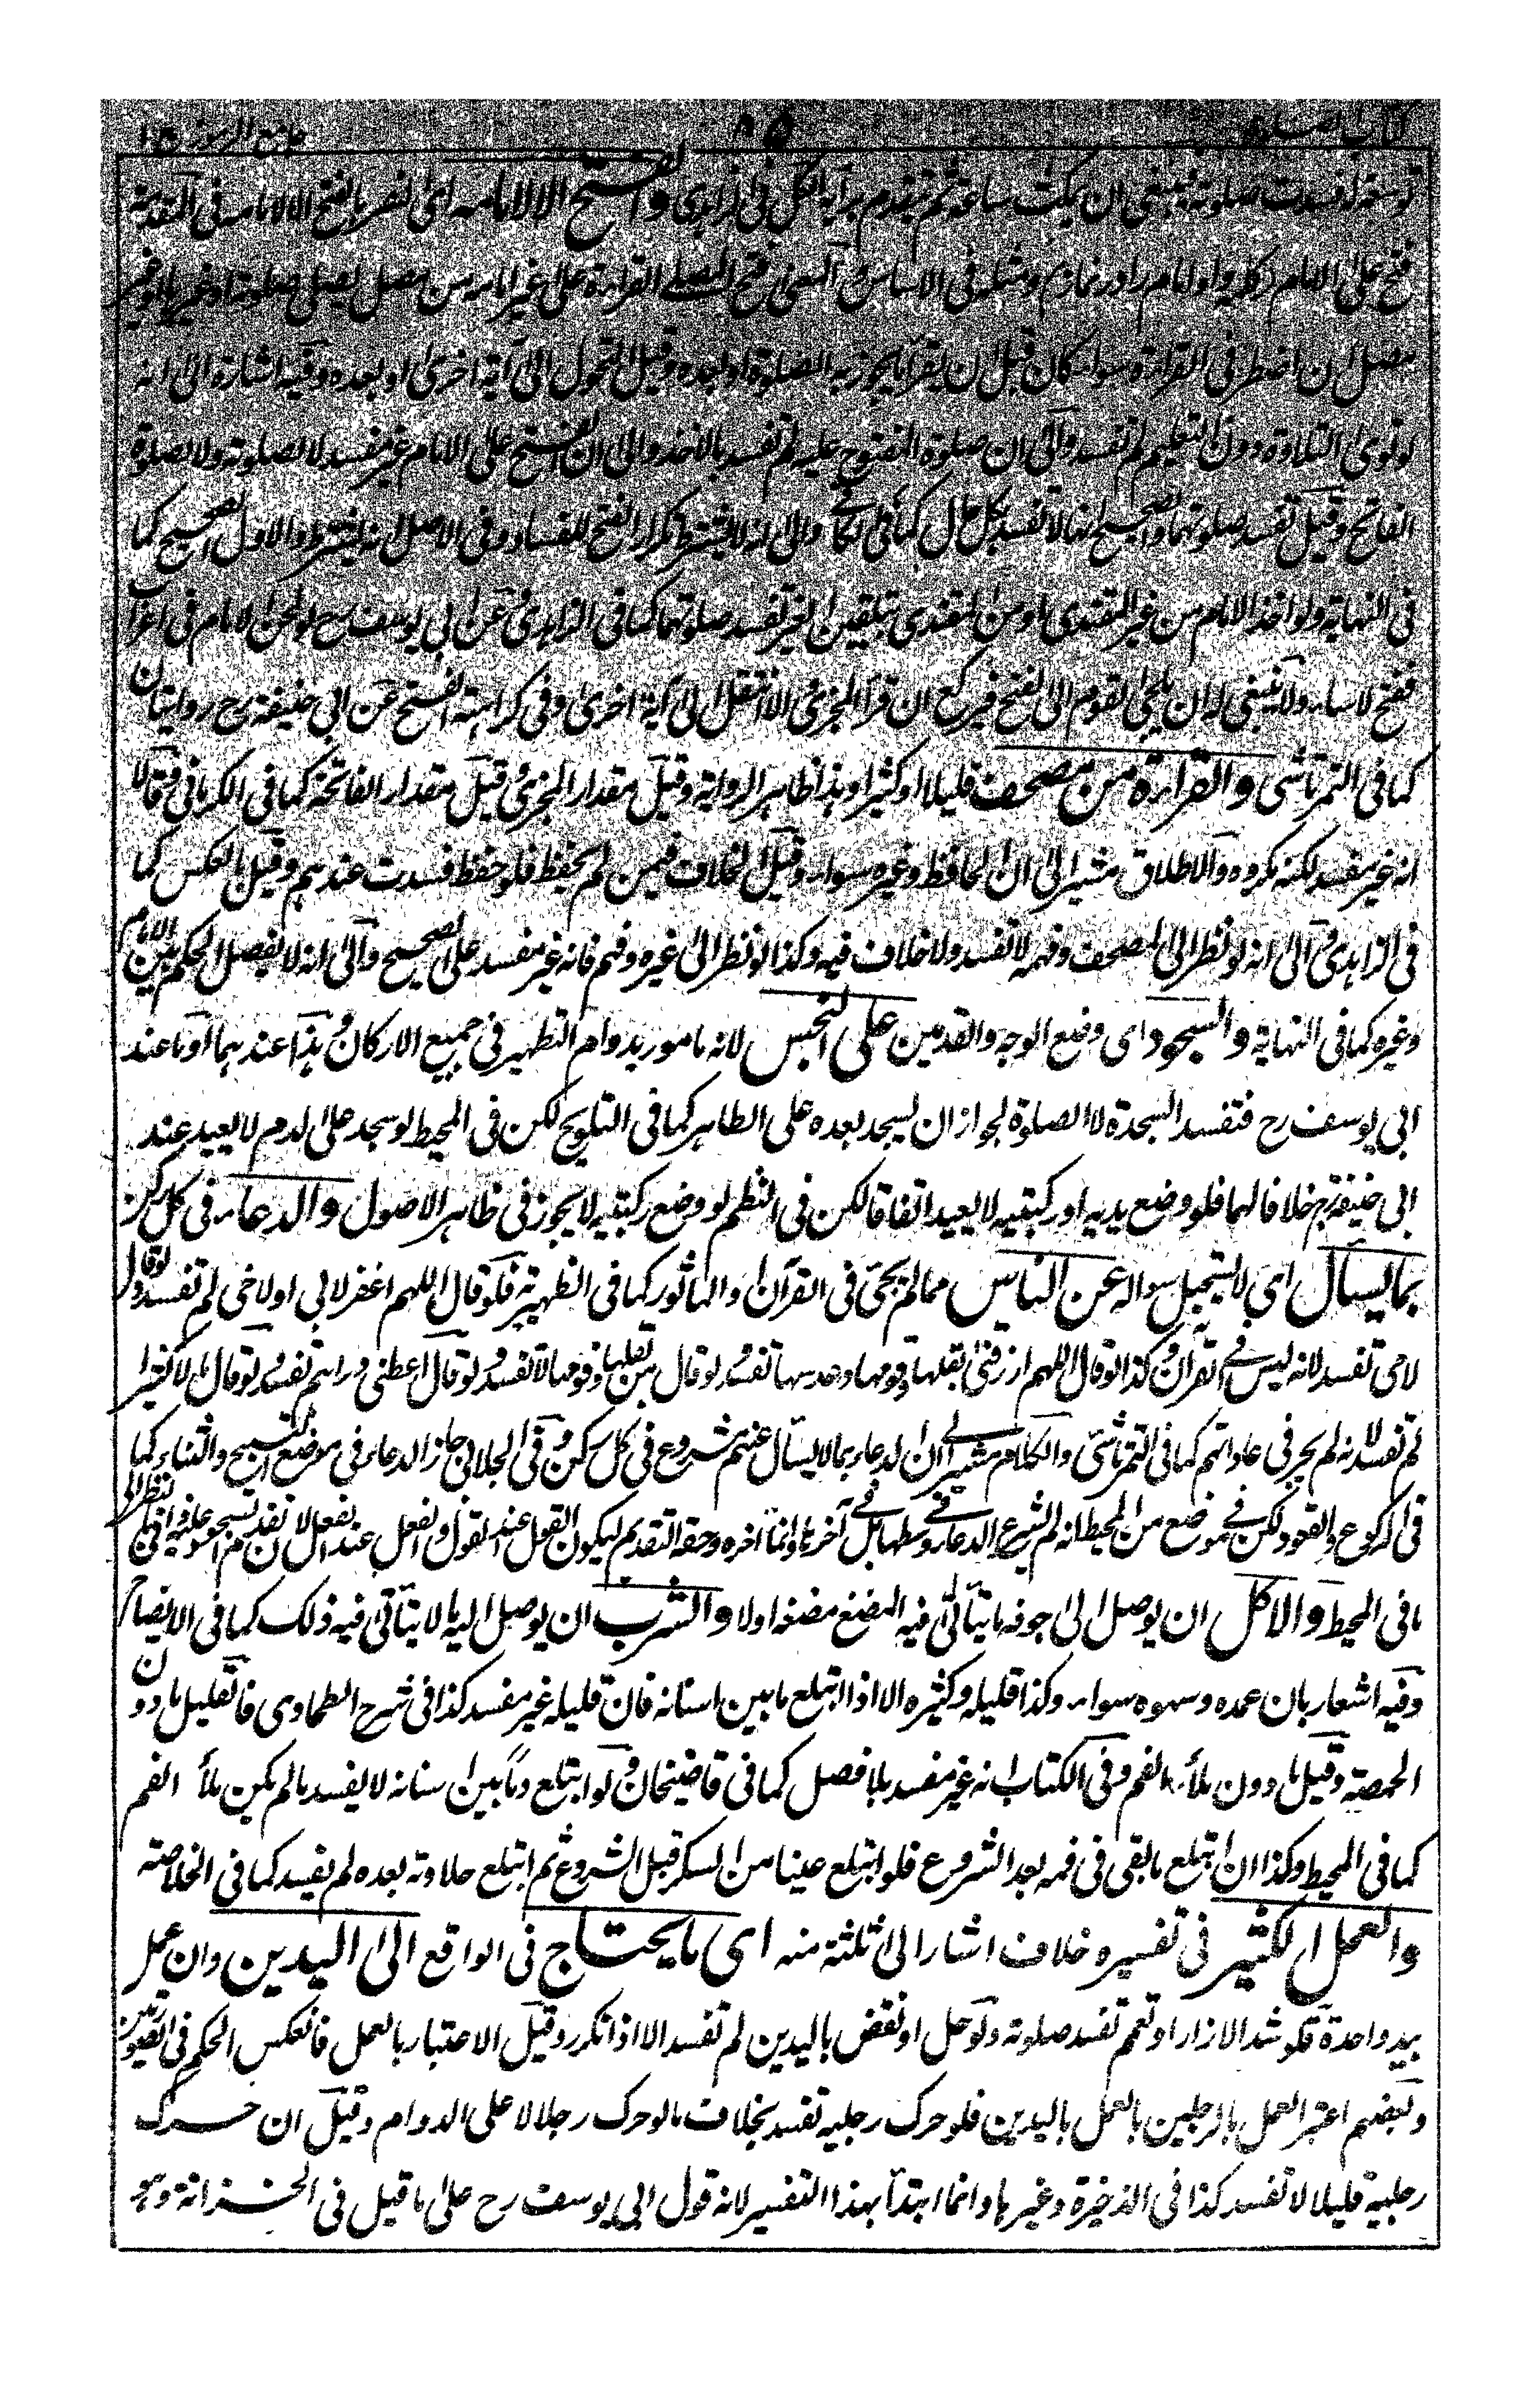 كتاب الصلوة ٨٥ جامع الرموز ج ١
توسعة لفسدت صلوته فينبغي ان يمكث ساعة ثم يتقدم برأيه الكل في الزاهدي والفتح الا لامامه اى تفسر بالفتح الا لامامه فى المقدمة
فتح على الامام وفى الاساس اى فتح المصلى القراءة على غير امامه من مصل ليصلى صلوته او غير
مصل ان اضطر فى القراءة سواء كان قبل ان يقرأ ما يجوز به الصلوة او بعده وقيل التحول الى آية اخرى او بعده وفيه اشارة الى انه
لو نوى التلاوة دون التعليم لم تفسد والى ان صلوة المفتوح عليه لم تفسد بالاخذ والى ان الفتح على الامام غير مفسد لا لصلوته ولا لصلوة
الفاتح وقيل تفسد صلوتهما والصحيح انها لا تفسد بكل حال كما فى الكافى والى انه لا يشترط تكرار الفتح للفساد وفى الاصل انه يشترط والاول الصحيح كما
فى النهاية ولو اخذ الامام من غير المقتدى او من المقتدى بتلقين الغير تفسد صلوتهما كما فى الزاهدى وعن ابى يوسف رح لو لحن الامام فى اعراب
ففتح لا ساء ولا ينبغى له ان يلجئ القوم الى الفتح فيركع ان قرأ المجزئ والا انتقل الى آية اخرى وفى كراهته الفتح عن ابى حنيفة رح روايتان
كما فى التمرتاشى والقراءة من مصحف قليلا او كثيرا وهذا ظاهر الرواية وقيل مقدار المجزئ وقيل مقدار الفاتحة كما فى الكرمانى وقالا
انه غير مفسد لكنه مكروه والاطلاق مشير الى ان الحافظ وغيره سواء وقيل الخلاف فيمن لم يحفظ فلو حفظ فسدت عندهم وقيل بالعكس كما
فى الزاهدى والى انه لو نظر الى المصحف وفهمه لا تفسد ولا خلاف فيه وكذا لو نظر الى غيره وفهم فانه غير مفسد على الصحيح والى انه لا يفصل الحكم بين الامام
وغيره كما فى النهاية والسجود اى وضع الوجه والقدمين على النجس لانه مامور بدوام التطهير فى جميع الاركان وهذا عندهما اوما عند
ابى يوسف رح فتفسد السجدة لا الصلوة لجواز ان يسجد بعده على الطاهر كما فى التلويح لكن فى المحيط لو سجد على لدم لا يعيد عند
ابى حنيفة رح خلافا لهما فلو وضع يديه او ركبتيه لا يعيد اتفاقا لكن فى النظم لو وضع ركبتيه لا يجوز فى ظاهر الاصول والدعاء فى كل ركن
بما يسأل اى لا يستحيل سواله عن الناس مما لم يجئ فى القرآن والماثور كما فى الظهيرية فلو قال اللهم اغفر لابى او لاخى لم تفسد ولو قال
لامى تفسد لانه ليس فى القرآن وكذا لو قال اللهم ارزقنى بقلها وقومها وعدسها تفسد ولو قال من بقلها وقومها لا تفسد ولو قال اعطنى دراهم تفسد ولو قال مالا كثيرا
لم تفسد لانه لم يجر فى عادتهم كما فى التمرتاشى والكلام مشير الى ان الدعاء بما لا يسأل عنهم مشروع فى كل ركن وفى الجلابى جاز الدعاء فى موضع التسبيح والثناء كما
فى الركوع والقعود لكن فى موضع من المحيط انه لم يشرع الدعاء فى وسطها بل فى آخرها وانما اخره وحقه التقديم ليكون القول عند القول والفعل عند الفعل
ما فى المحيط والاكل ان يوصل الى جوفه ما يتأتى فيه المضغ مضغه اولا والشرب ان يوصل اليه ما لا يتأتى فيه ذلك كما فى الايضاح
وفيه اشعار بان عمده وسهوه سواء وكذا قليله وكثيره الا اذا ابتلع ما بين اسنانه فان قليله غير مفسد كذا فى شرح الطحاوى فالقليل ما دون
الحمصة وقيل ما دون ملأ الفم وفى الكتاب انه غير مفسد بلا فصل كما فى قاضيخان ولو ابتلع دما بين اسنانه لا يفسد ما لم يكن ملأ الفم
كما فى المحيط وكذا ان ابتلع ما بقى فى فمه بعد الشروع فلو ابتلع عينا من السكر قبل الشروع ثم ابتلع حلاوته بعده لم يفسد كما فى الخلاصة
والعمل الكثير فى تفسيره خلاف اشار الى ثلثة منه اى ما يحتاج فى الواقع الى اليدين وان عمل
بيد واحدة فلو شد الازار او تعمم تفسد صلوته ولو حل او نقض باليدين لم تفسد الا اذا تكرر وقيل الاعتبار بالعمل فانعكس الحكم فى الصورتين
وبعضهم اعتبر العمل بالرجلين بالعمل باليدين فلو حرك رجليه تفسد بخلاف ما لو حرك رجلا لا على الدوام وقيل ان حرك
رجليه قليلا لا تفسد كذا فى الذخيرة وغيرها وانما ابتدأ بهذا التفسير لانه قول ابى يوسف رح على ما قيل فى الخزانة وهو